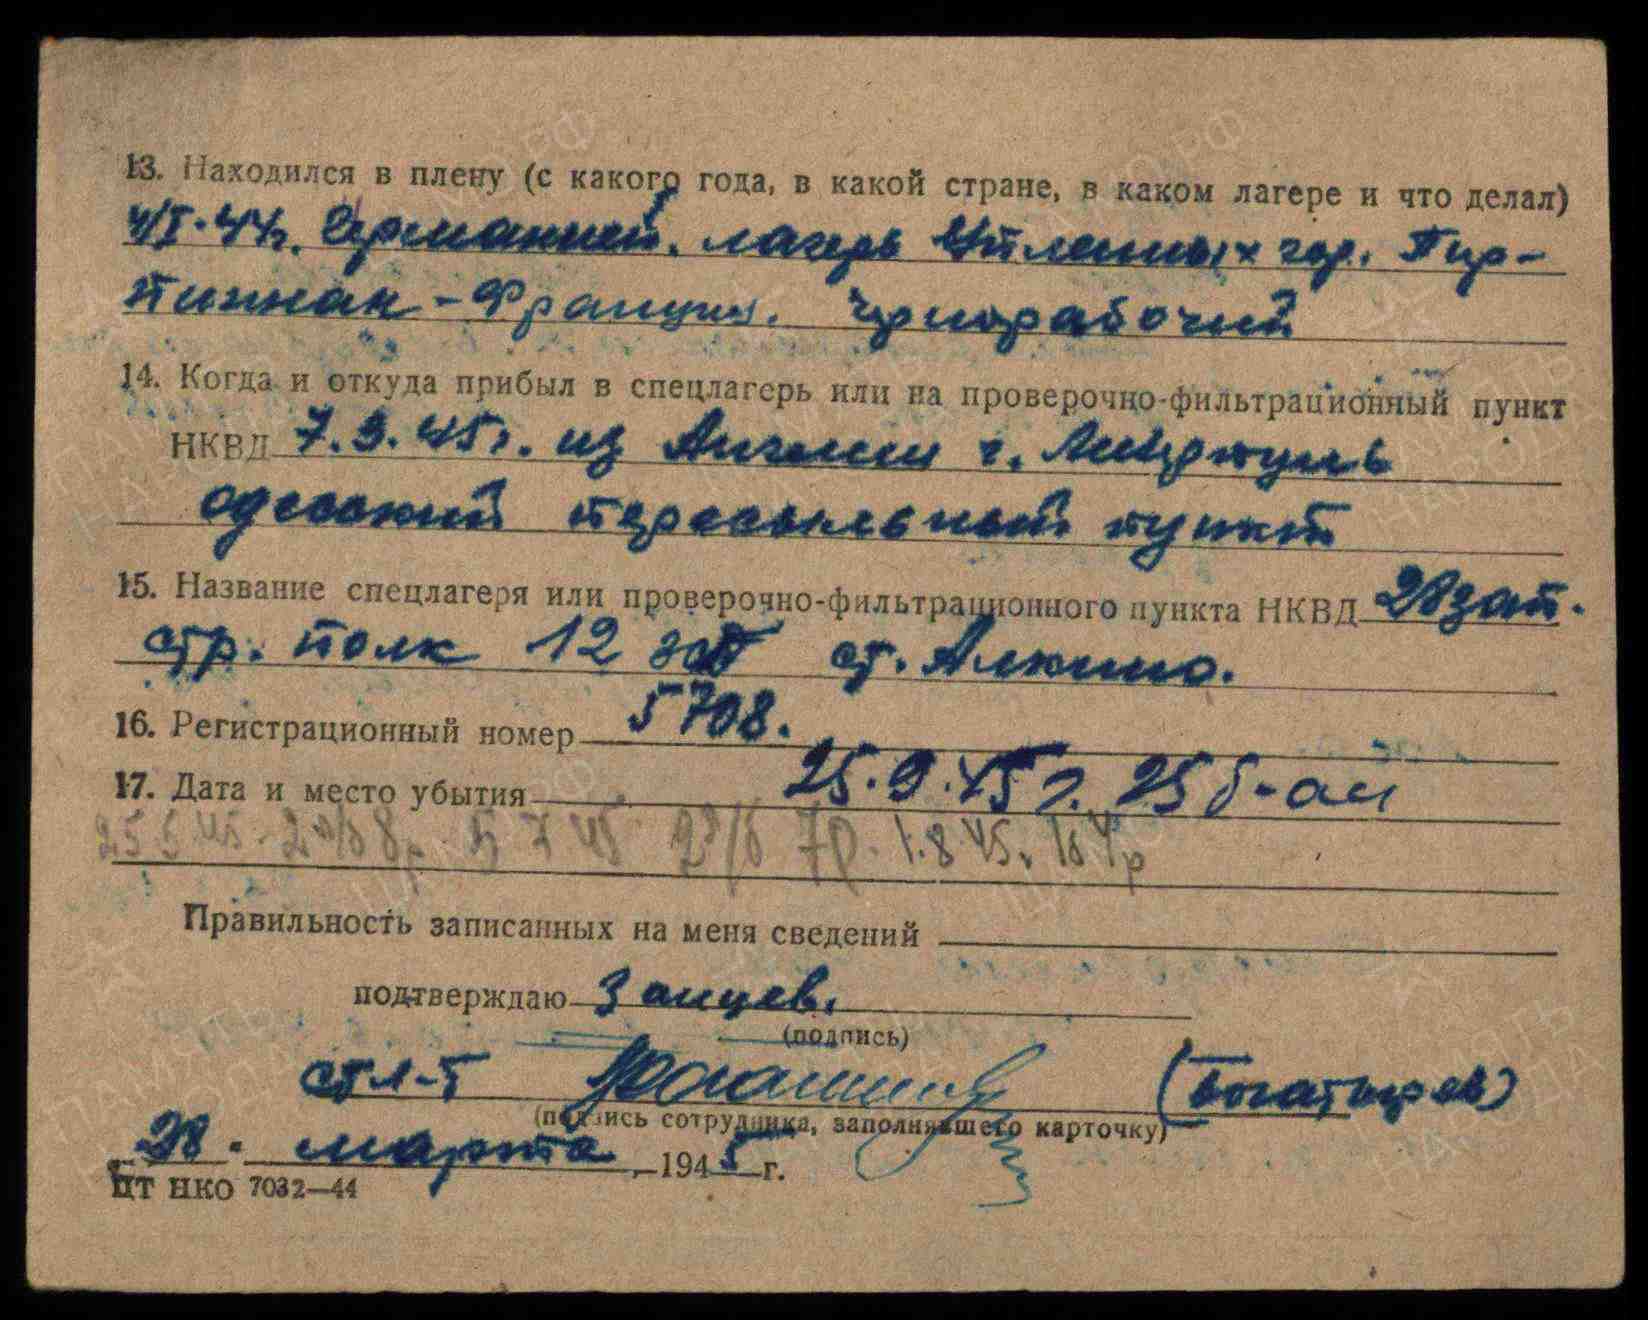 13. Находился в плену (с какого года, в какой стране, в каком лагере и что делал)
44г. Германией. лагерь в/пленных гор. Пир-
пиннак - Франция. чернорабочий
14. Когда и откуда прибыл в спецлагерь или на проверочно-фильтрационный пункт
НКВД 7.3.45г. из Англии г. Ливерпуль
одесский пересыльный пункт
15. Название спецлагеря или проверочно-фильтрационного пункта НКВД 28 зап.
стр. полк 12 зсд ст. Алкино.
16. Регистрационный номер 5708.
17. Дата и место убытия 25.9.45 г. 25 б-он
1.8.45.
Правильность записанных на меня сведений
подтверждаю Заицев.
(подпись)
ст л-т (Богатырев)
(подпись сотрудника, заполнявшего карточку)
28. марта 1945 г.
ЦТ НКО 7032—44
ПАМЯТЬ НАРОДА